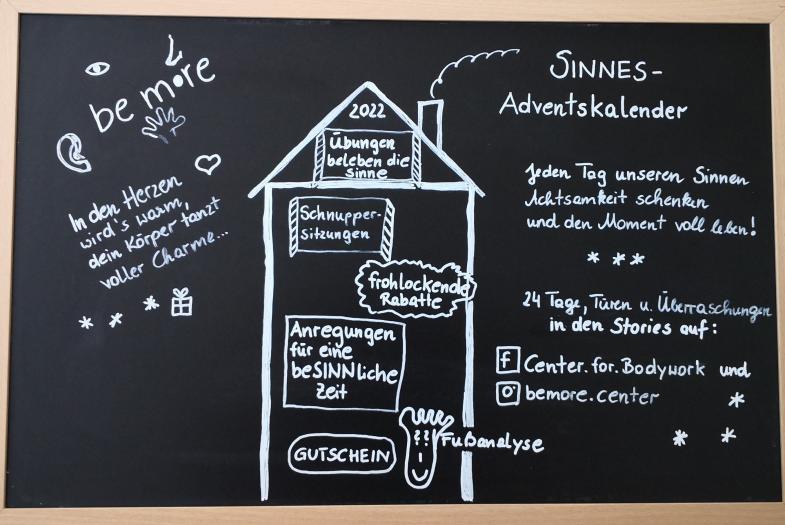 be more
In den Herzen
wird's warm,
dein Körper tanzt
voller Charme...
2022
Übungen
beleben die
Sinne
Schnupper-
sitzungen
frohlockende
Rabatte
Anregungen
für eine
beSINNliche
Zeit
GUTSCHEIN
??
Fußanalyse
SINNES-
Adventskalender
Jeden Tag unseren Sinnen
Achtsamkeit schenken
und den Moment voll leben!
* * *
24 Tage, Türen u. Überraschungen
in den Stories auf:
f Center.for.Bodywork und
bemore.center